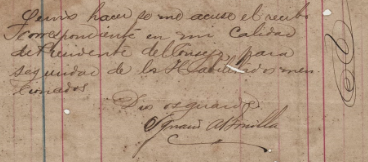 hacer como acuso el recibo
correspondiente en mi calidad
de Presidente del Consejo, para
seguridad de los Habilitados men-
cionados.
Dios os guarde
Ignacio A. Bonilla